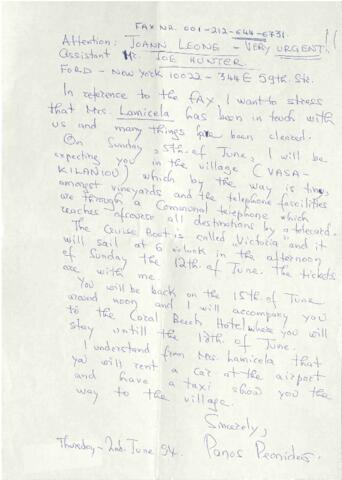 FAX NR. 001-212-644-6731.
Attention: JOANN LEONE - VERY URGENT!
Assistant Mr. JOE HUNTER.
FORD - NEW YORK 10022 - 344 E 59th. Str.
In reference to the FAX, I want to stress
that Mrs. Lamicela has been in touch with
us and many things have been cleared.
On Sunday 5th of June, I will be
expecting you in the village (VASA-
KILANIOU) which by the way is
amongst vineyards and the telephone facilities
are through a Communal telephone which
reaches ofcourse all destinations by a telecard.
The Cruise Boat is called "Victoria" and it
will sail at 6 o'clock in the afternoon
of Sunday the 12th of June. The tickets
are with me.
You will be back on the 15th of June
around noon and I will accompany you
to the Coral Beach Hotel where you will
stay untill the 18th of June.
I understand from Mrs. Lamicela that
you will rent a car at the airport
and have a taxi show you the
way to the village.
Sincerely,
Thursday - 2nd. June 94. Panos